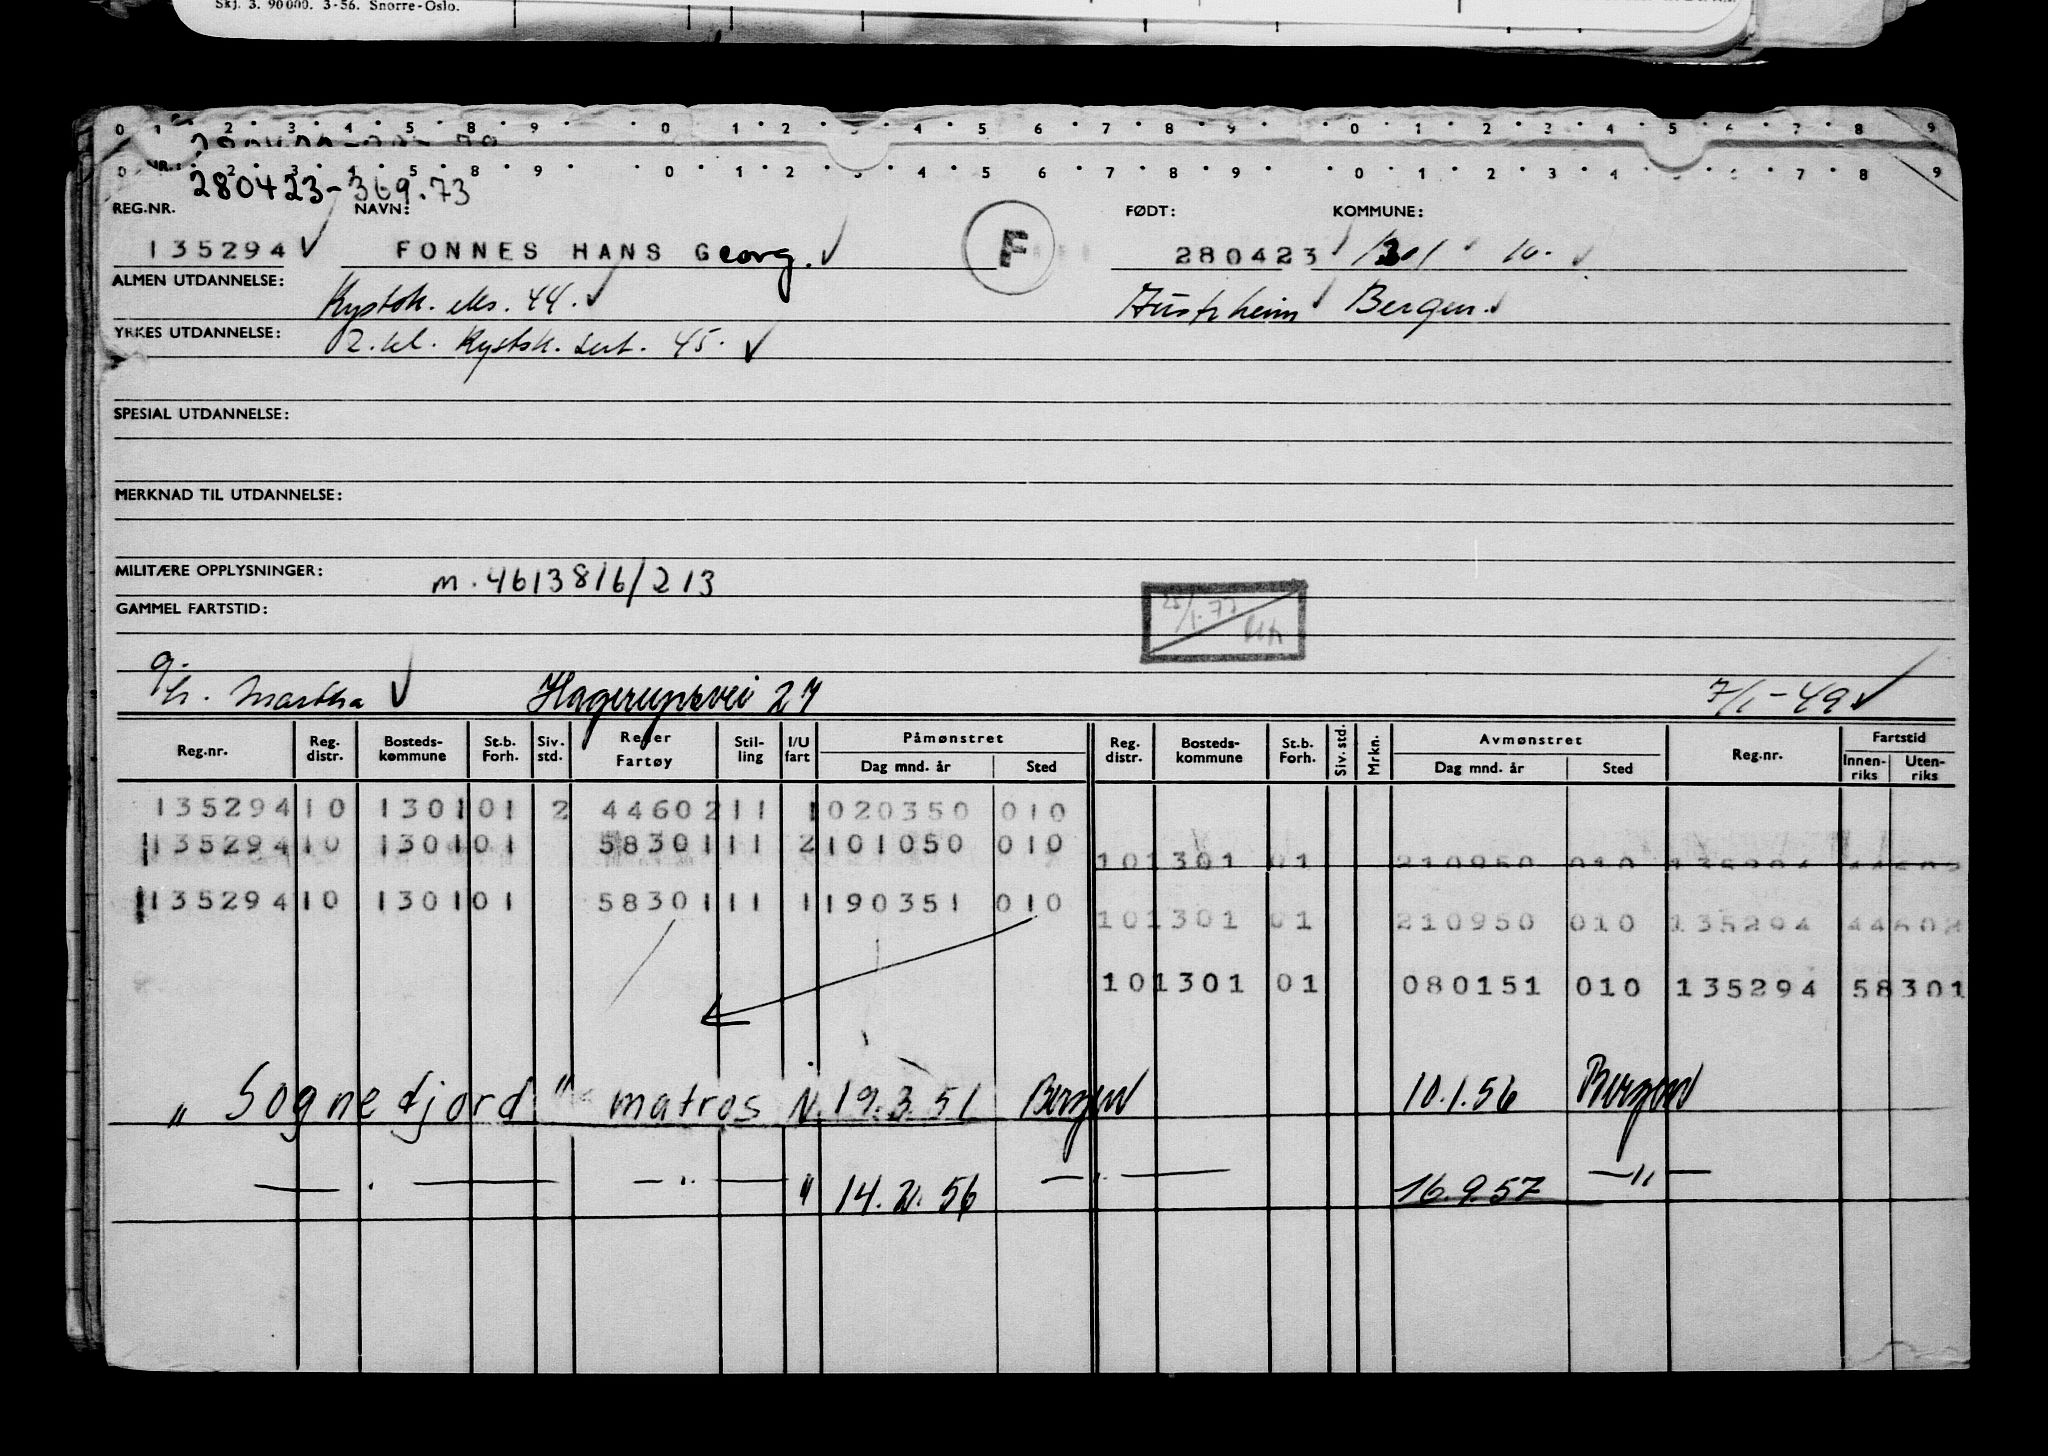 Skj. 3. 90000. 3-56. Snorre-Oslo.
0 1 2 3 4 5 8 9 0 1 2 3 4 5 6 7 8 9 0 1 2 3 4 5 6 7 8 9
0 NR. 2 3 4 5 8 9 0 1 2 3 4 5 6 7 8 9 0 1 2 3 4 5 6 7 8 9
280423-369.73
REG.NR. NAVN: FØDT: KOMMUNE:
135294 FONNES HANS Georg. F 280423 1301 10.
ALMEN UTDANNELSE: Kystsk. eks. 44. Austrheim Bergen.
YRKES UTDANNELSE: 2. kl. Kystsk. sert. 45.
SPESIAL UTDANNELSE:
MERKNAD TIL UTDANNELSE:
MILITÆRE OPPLYSNINGER: m. 4613816/213
GAMMEL FARTSTID: 25/1.73
g.
h. Martha Hagerupsvei 27 7/1-49
Reg.nr. Reg. distr. Bosteds- kommune St.b. Forh. Siv. std. Reder Fartøy Stil- ling I/U fart Påmønstret Dag mnd. år Sted Reg. distr. Bosteds- kommune St.b. Forh. Siv. std. Mrkn. Avmønstret Dag mnd. år Sted Reg.nr. Fartstid Innen- riks Uten- riks
135294 10 1301 01 2 44602 11 1 020350 010
135294 10 1301 01 58301 11 2 101050 010
10 1301 01 210950 010 135294 44602
135294 10 1301 01 58301 11 1 190351 010
10 1301 01 210950 010 135294 44602
10 1301 01 080151 010 135294 58301
" Sognefjord " matros N. 19.3.51 Bergen 10.1.56 Bergen
— " — — " — " 14.2.56 — " — 16.9.57 — " —